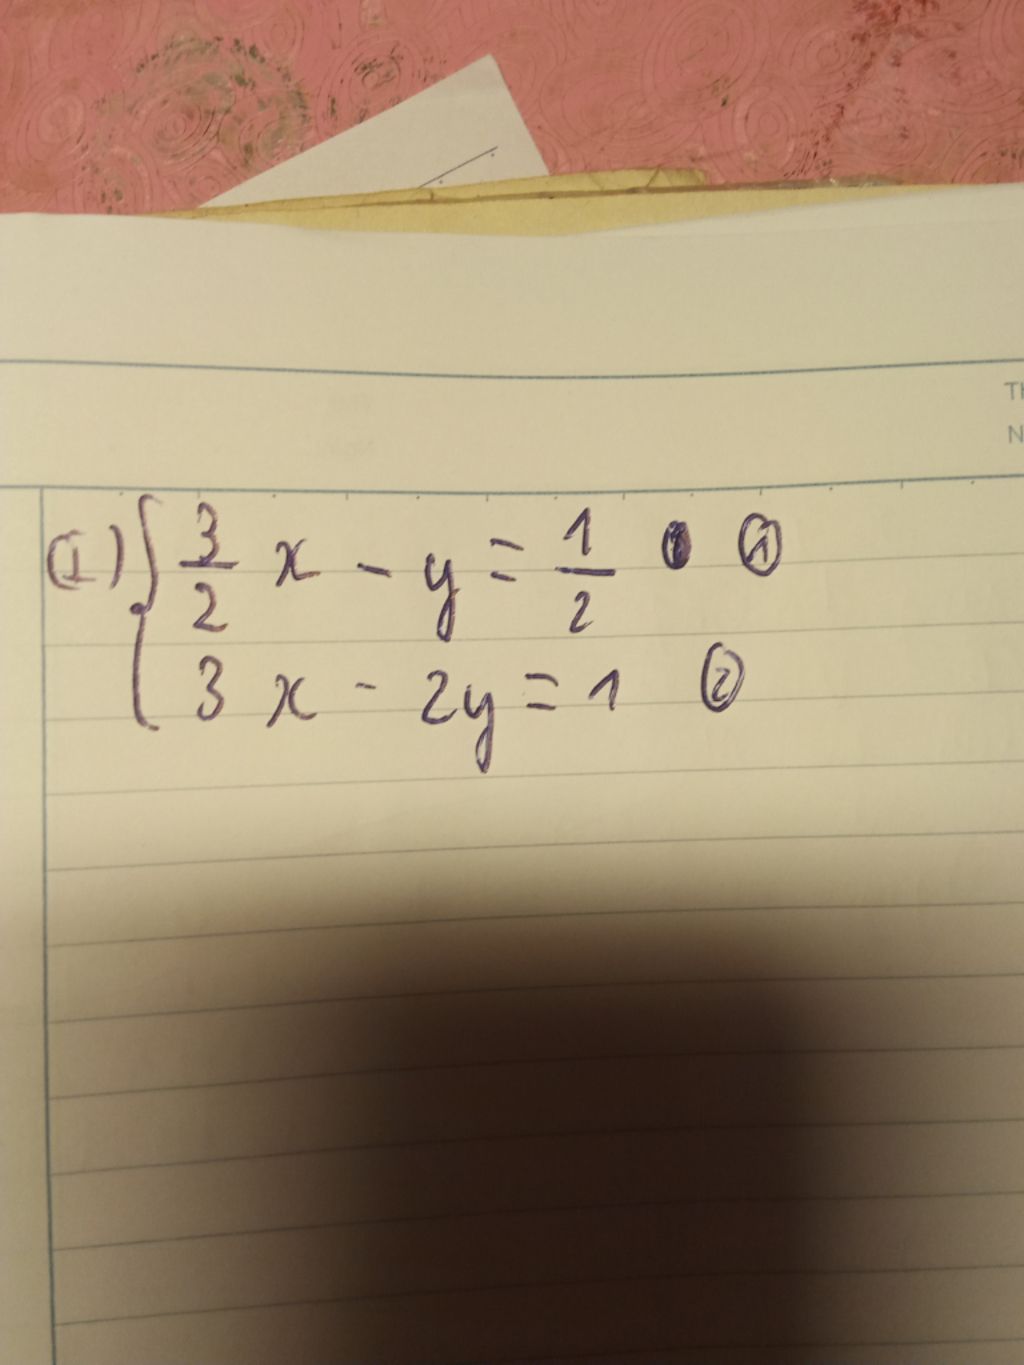 (I) { 3/2 x - y = 1/2 ①
3x - 2y = 1 ②